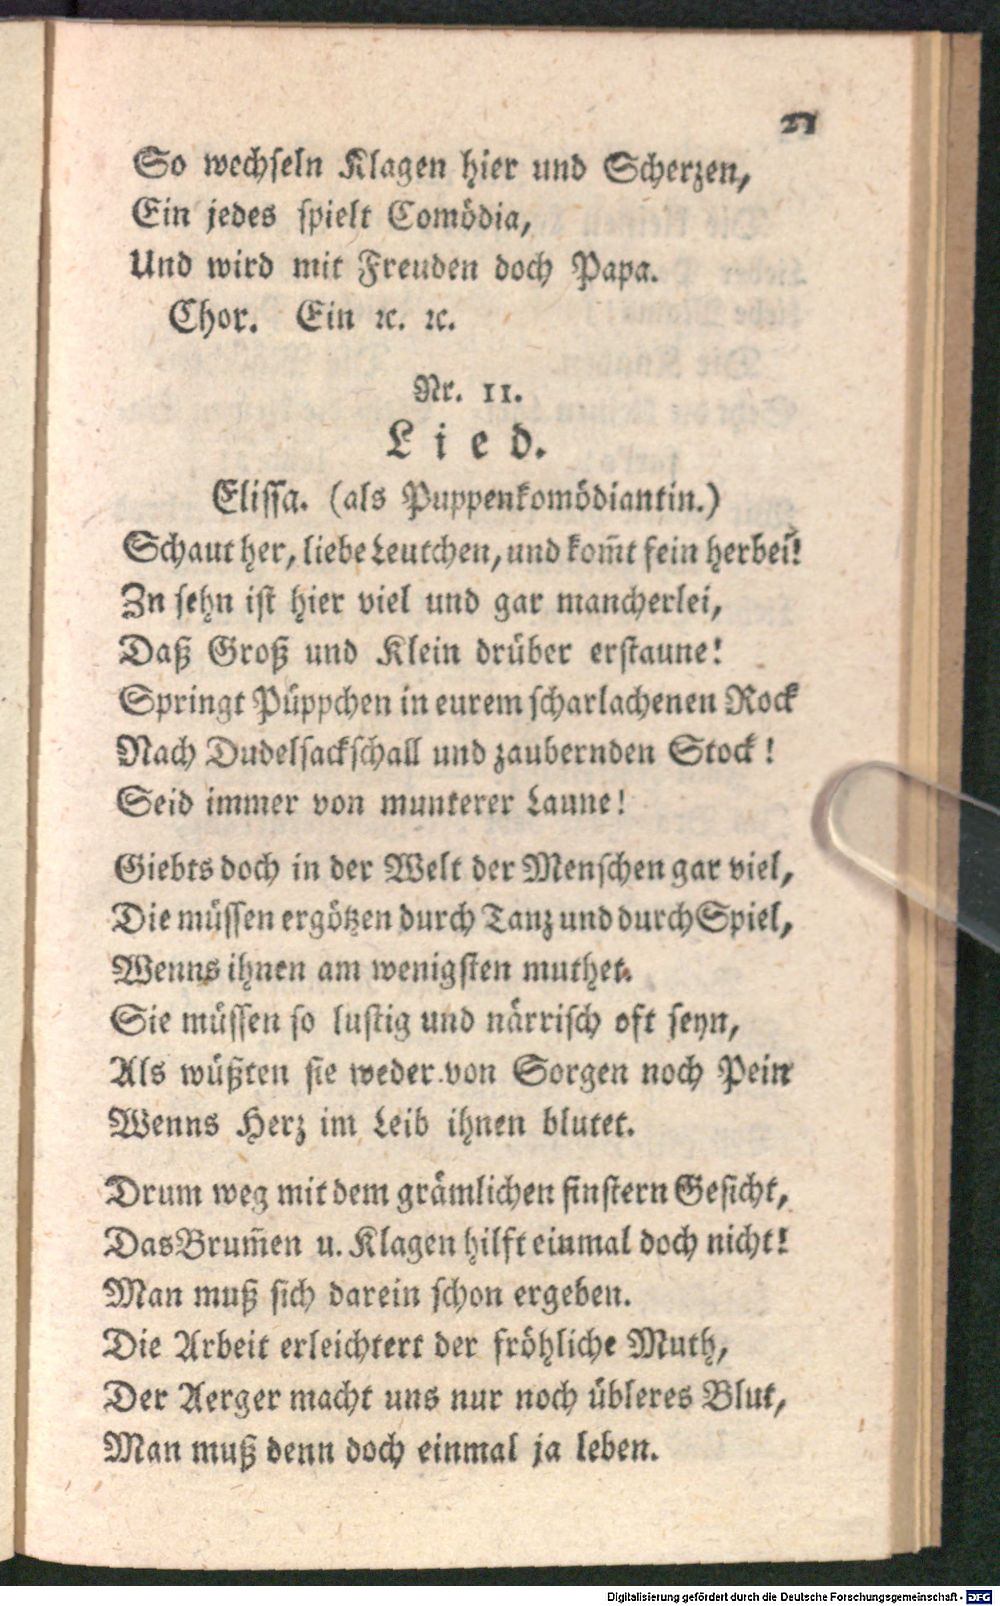 21
So wechseln Klagen hier und Scherzen,
Ein jedes spielt Comödia,
Und wird mit Freuden doch Papa.
Chor. Ein ꝛc. ꝛc.
Nr. 11.
Lied.
Elissa. (als Puppenkomödiantin.)
Schaut her, liebe Leutchen, und kom̄t fein herbei!
Zn sehn ist hier viel und gar mancherlei,
Daß Groß und Klein drüber erstaune!
Springt Püppchen in eurem scharlachenen Rock
Nach Dudelsackschall und zaubernden Stock!
Seid immer von munterer Laune!
Giebts doch in der Welt der Menschen gar viel,
Die müssen ergötzen durch Tanz und durch Spiel,
Wenns ihnen am wenigsten muthet.
Sie müssen so lustig und närrisch oft seyn,
Als wüßten sie weder von Sorgen noch Pein
Wenns Herz im Leib ihnen blutet.
Drum weg mit dem grämlichen finstern Gesicht,
Das Brum̄en u. Klagen hilft einmal doch nicht!
Man muß sich darein schon ergeben.
Die Arbeit erleichtert der fröhliche Muth,
Der Aerger macht uns nur noch übleres Blut,
Man muß denn doch einmal ja leben.
Digitalisierung gefördert durch die Deutsche Forschungsgemeinschaft - DFG